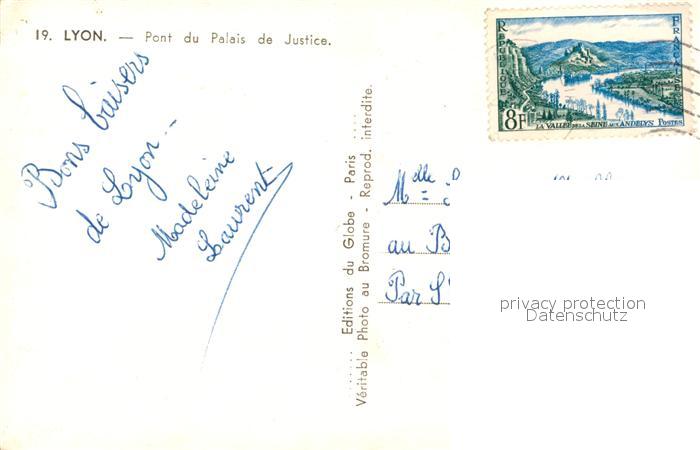 19. LYON. — Pont du Palais de Justice.
Bons baisers
de Lyon...
Madeleine
Laurent
Editions du Globe - Paris
Véritable Photo au Bromure - Reprod. interdite.
REPUBLIQUE
FRANÇAISE
8F
LA VALLEE DE LA SEINE AUX ANDELYS POSTES
Melle
au B
Par S
privacy protection
Datenschutz